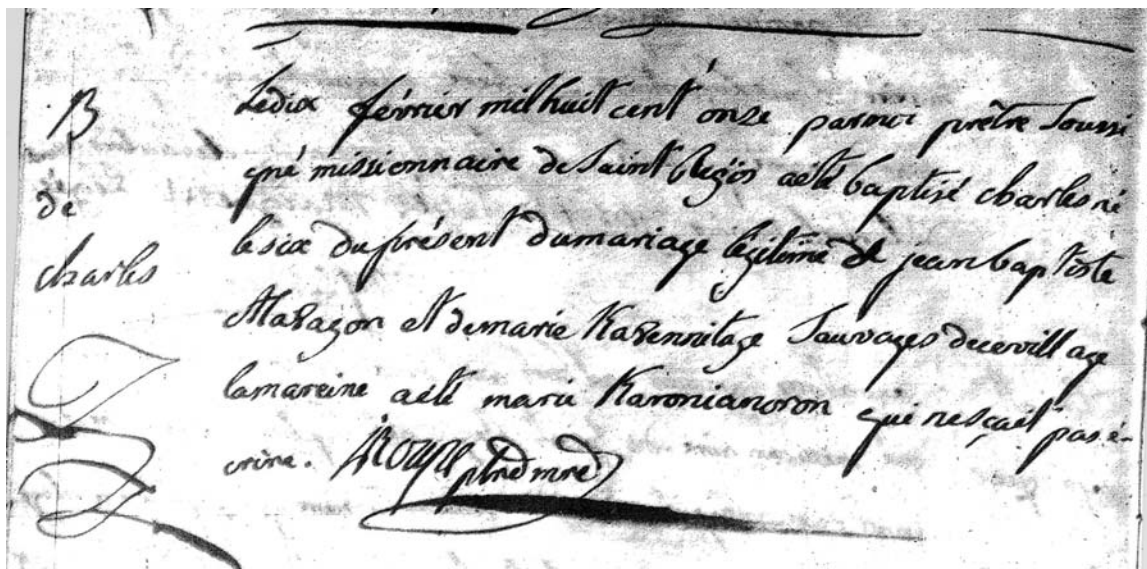 B
de
charles
Le dix février mil huit cent onze par moi prêtre soussi
gné missionnaire de Saint Régis a été baptisé charles né
le six du présent du mariage légitime de jean baptiste
et de marie Sauvages de ce village
la mareine a été marie Karonianoron qui ne sçait pas é-
crire.